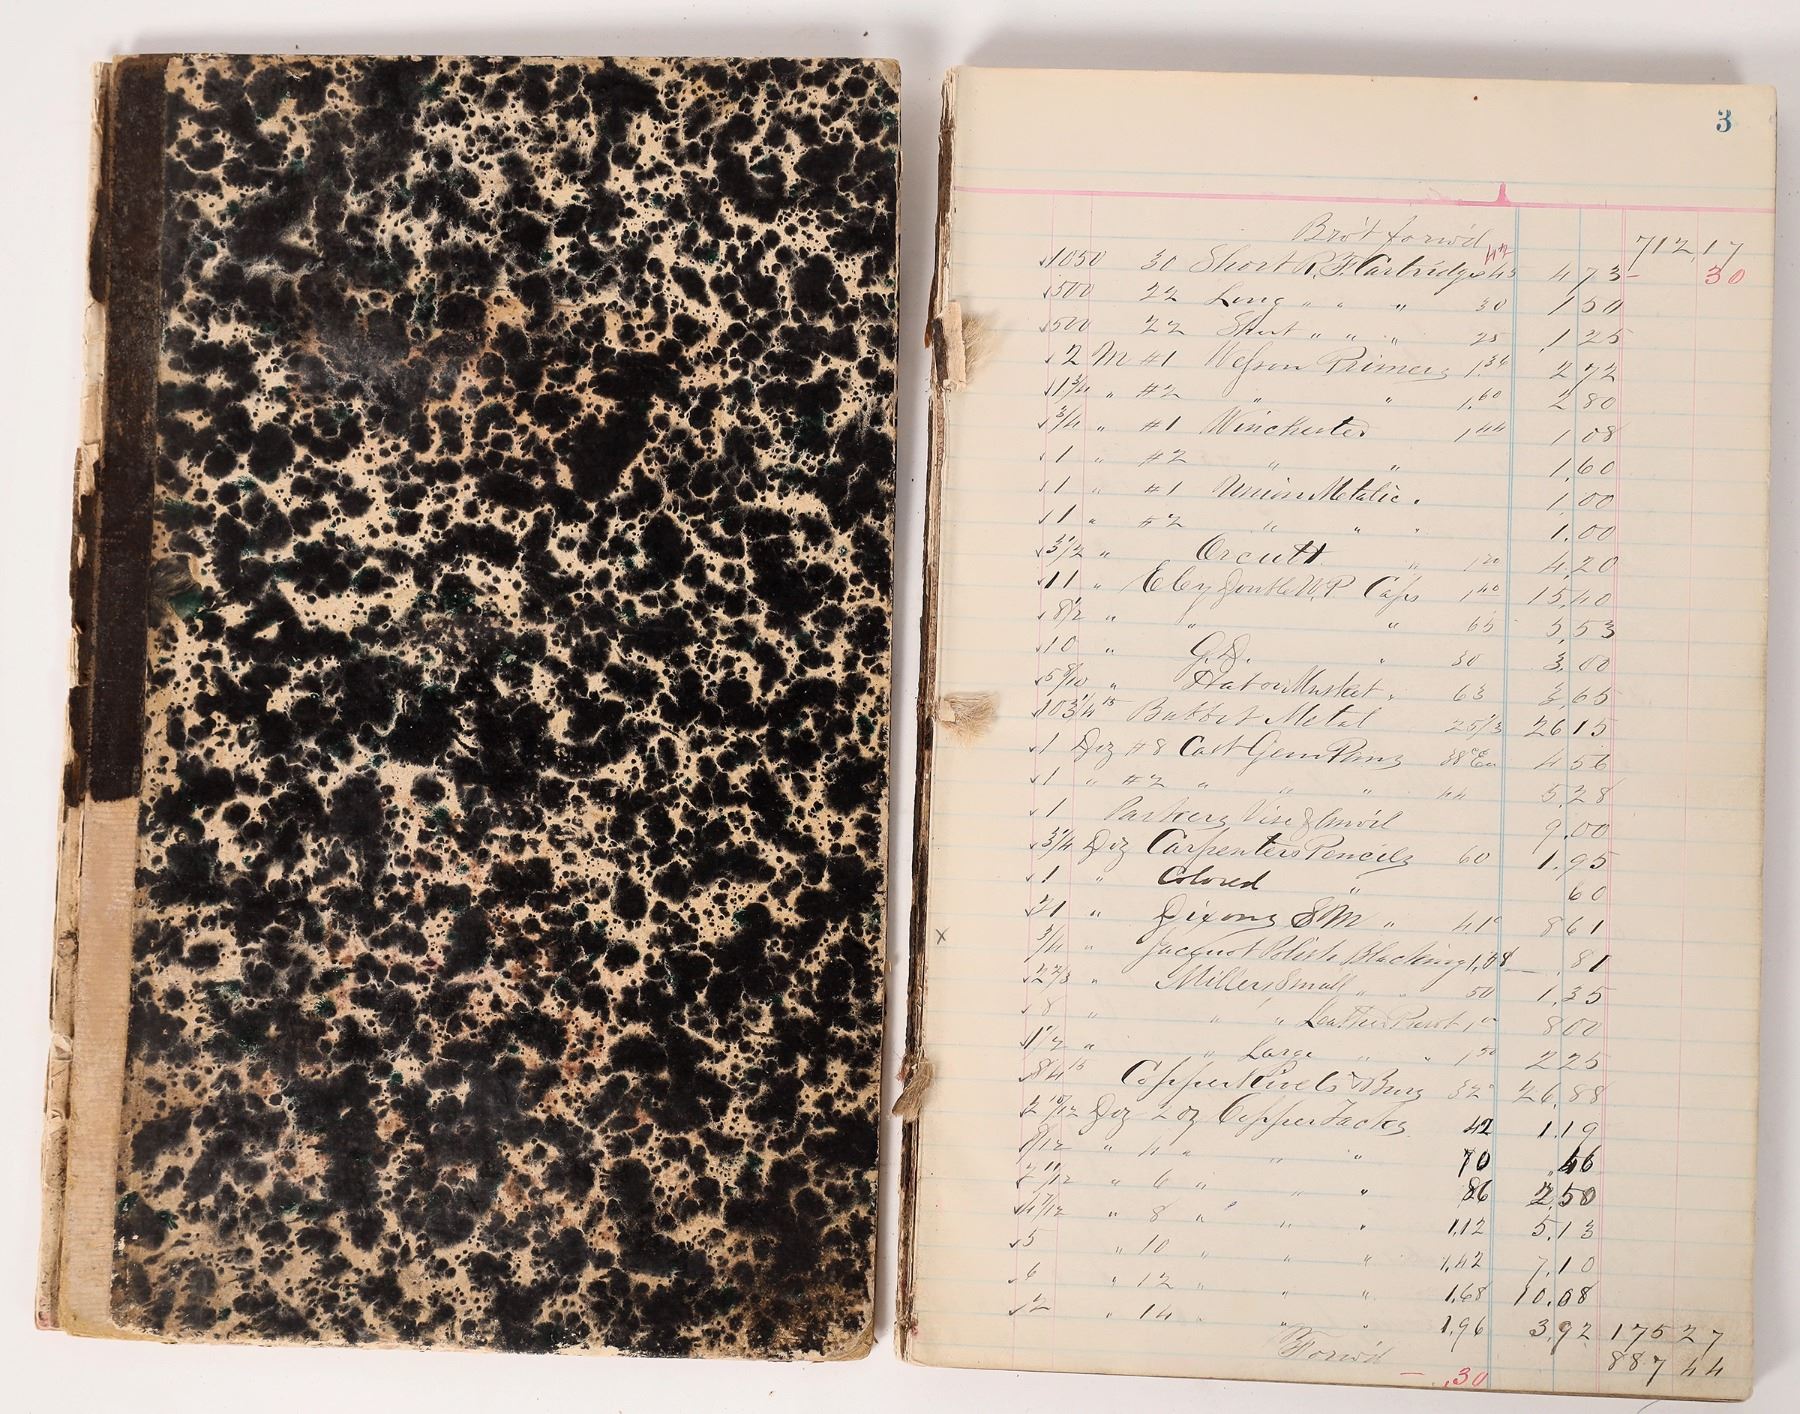 3
Bro't forw'd 712,17
1050 30 Short R.F. Cartridges 45 4 73 - 30
500 22 Long " " " 30 1 50
500 22 Short " " " 25 1,25
2 M #1 Wesson Primers 1.36 2 72
1 3/4 " #2 " " 1.60 2 80
3/4 " #1 Winchester 1 44 1 08
1 " #2 " " 1,60
1 " #1 Union Metalic " 1,00
1 " #2 " " " 1.00
3 1/2 " Orcutt " 1 20 4,20
11 " Eley Double W.P Caps 1 40 15,40
8 1/2 " " " 65 5,53
10 " G.D. " 30 3,00
5 8/10 " Hat or Musket " 63 3,65
103 1/4 lb Babbet Metal 25 1/3 26 15
1 Doz #8 Cast Gem Pans 38 c Ea 4 56
1 " #2 " " " 44 5,28
1 Parkers Vise & Anvil 9.00
3 1/4 Doz Carpenters Pencils 60 1.95
1 " Colored " 60
21 " Dixons S M " 41 c 8 61
x 3/4 " Jacquot Polish Blacking 1,08 - .81
2 2/3 " Millers Small " " 50 1,35
8 " " " Leather Preserv 1 00 8 00
1 1/2 " " Large " " 1 50 2 25
84 lb Copper Rivets & Burs 32 c 26,88
2 10/12 Doz 2 oz Copper Tacks 42 1.19
8/12 " 4 " " " 70 46
2 11/12 " 6 " " " 86 2,50
4 7/12 " 8 " " " 1,12 5.13
5 " 10 " " " 1,42 7,10
6 " 12 " " " 1,68 10.08
2 " 14 " " " 1,96 3,92 175 27
Forw'd 887 44
- .30